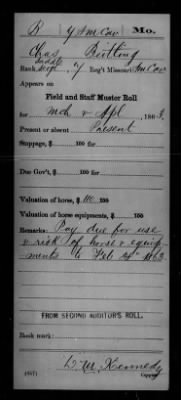 B 7 M.S.M. Cav Mo.
Chas Beitling
Rank Saddl Sergt, 7 Reg't Missouri S.M. Cav
Appears on
Field and Staff Muster Roll
for Mch & Apl, 1863.
Present or absent Present
Stoppage, $ 100 for
Due Gov't, $ 100 for
Valuation of horse, $ 110 100
Valuation of horse equipments, $ 100
Remarks: Pay due for use
& risk of horse & equip-
ments to Feb 24" 1863
FROM SECOND AUDITOR'S ROLL.
Book mark:
Kennedy
(857) Copyist.